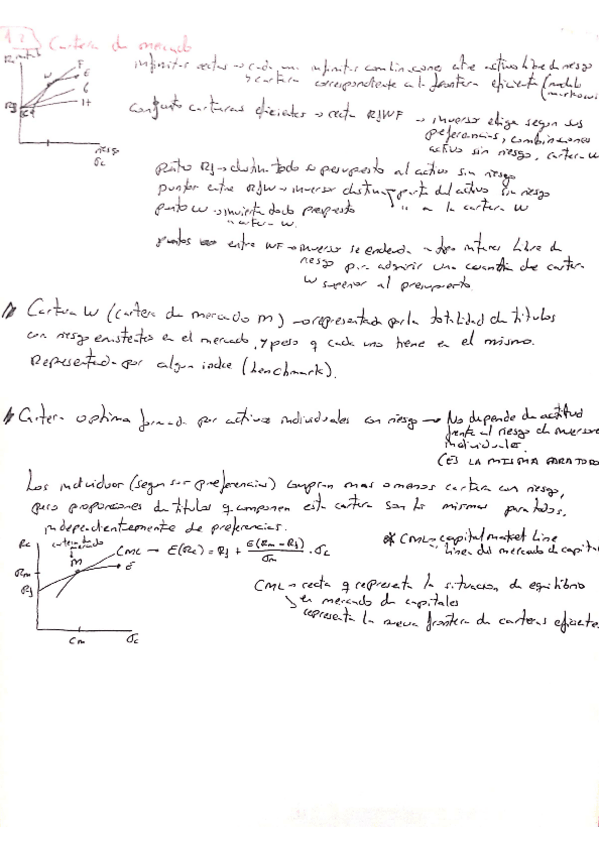 1.2 Cartera de mercado
infinitas rectas → cada una infinitas combinaciones entre activo libre de riesgo
y cartera correspondiente a la frontera eficiente (modelo
(markowi
Conjunto carteras eficientes → recta RfWF → inversor elige según sus
preferencias, combinaciones
activo sin riesgo, cartera W
punto Rf → destina todo su presupuesto al activo sin riesgo
puntos entre RfW → inversor destina parte del activo sin riesgo
" a la cartera W
punto W → invierte todo presupuesto
cartera W.
puntos entre WF → inversor se endeuda a tipo interes libre de
riesgo para adquirir una cuantía de cartera
W superior al presupuesto.
riesgo
σc
Rf
W
F
E
G
H
Cartera W (cartera de mercado M) → representada por la totalidad de titulos
con riesgo existentes en el mercado, y peso q cada uno tiene en el mismo.
Representada por algun indice (benchmark).
Cartera optima formada por activos individuales con riesgo → No depende de actitud
frente al riesgo de inversore
individuales.
(ES LA MISMA PARA TODO
Los individuos (segun sus preferencias) compran mas o menos cartera con riesgo,
pero proporciones de titulos q componen esta cartera son las mismas para todos,
independientemente de preferencias.
* CML → capital market Line
" linea del mercado de capital
Rc
cartera mercado
M
CML → E(Rc) = Rf + E(Rm - Rf)/σm · σc
E
Rm
Rf
σm
σc
CML → recta q representa la situacion de equilibrio
en mercado de capitales
representa la nueva frontera de carteras eficiente